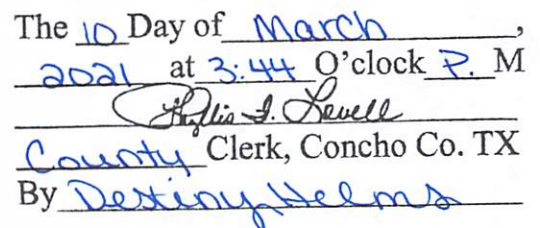 The 10 Day of March,
2021 at 3:44 O'clock P. M
Phyllis F. Lovell
County Clerk, Concho Co. TX
By Destiny Helms